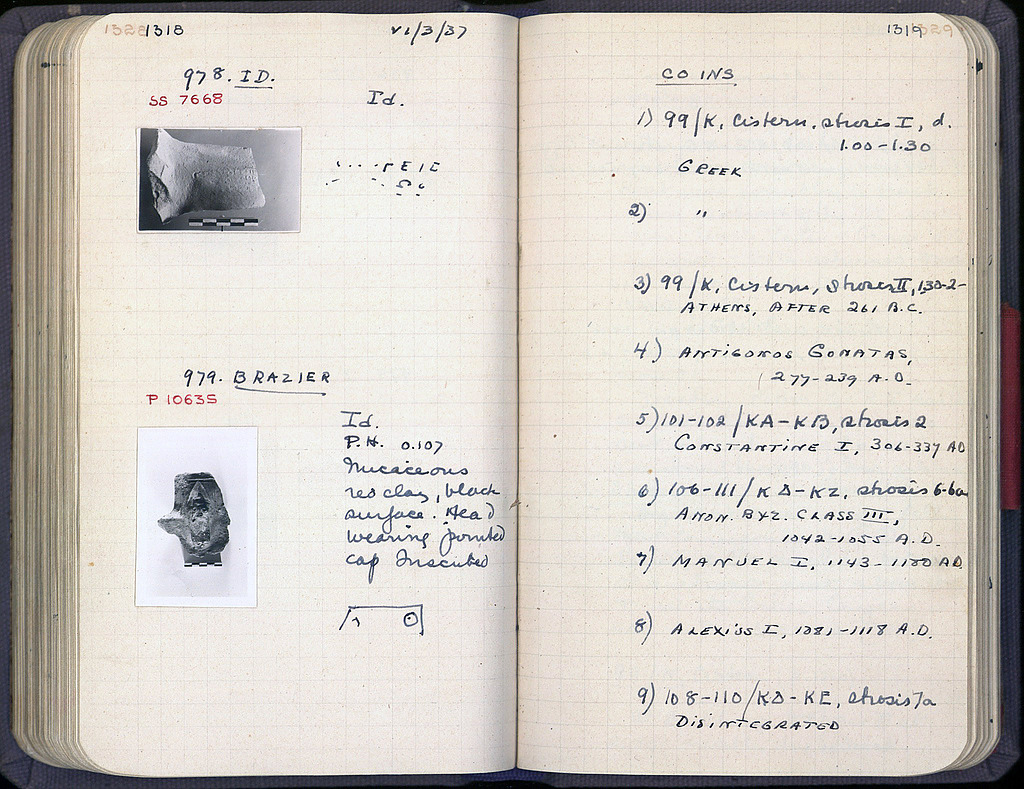 1328 1318 VI/3/37
978. ID.
SS 7668
Id.
979. BRAZIER
P 10635
Id.
P.H. 0.107
Micaceous
red clay, black
surface. Head
wearing pointed
cap Inscribed
1319 1329
COINS
1) 99/K, Cistern, strosis I, d.
1.00-1.30
GREEK
2) "
3) 99/K, Cistern, strosis II, 1.30-2-
ATHENS, AFTER 261 B.C.
4) ANTIGONOS GONATAS,
277-239 A.D.
5) 101-102/KA-KB, strosis 2
CONSTANTINE I, 306-337 AD
6) 106-111/KΔ-KZ, strosis 6-6a
ANON. BYZ. CLASS III,
1042-1055 A.D.
7) MANUEL I, 1143-1180 AD
8) ALEXIUS I, 1081-1118 A.D.
9) 108-110/KΔ-KE, strosis 7a
DISINTEGRATED